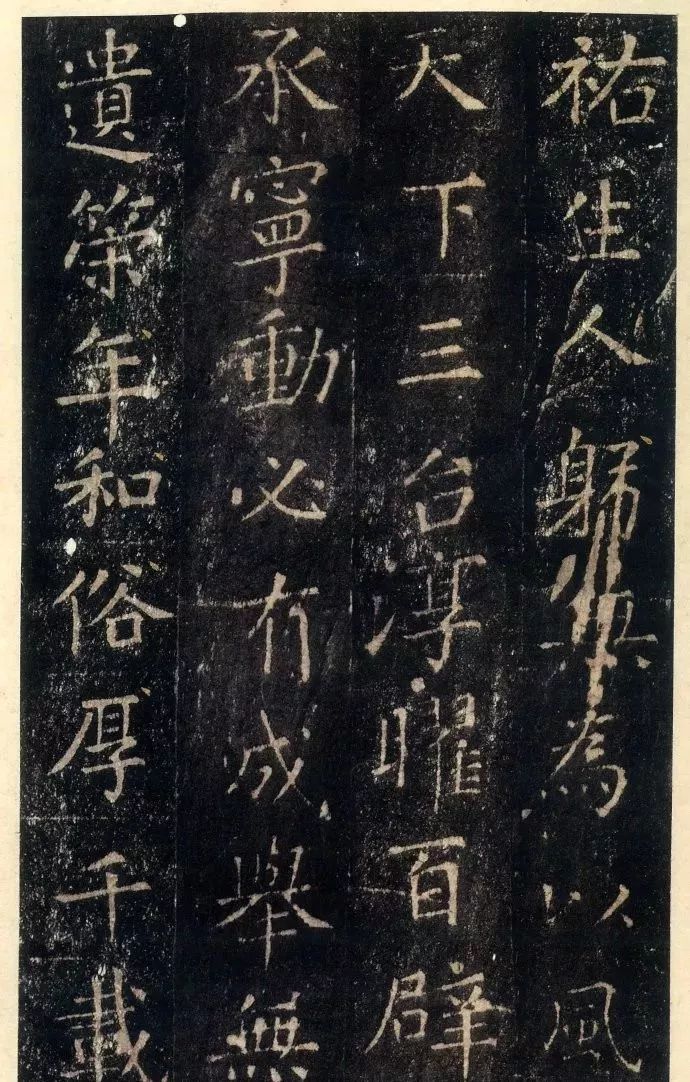 祐生人躬無為以風
天下三台淳曜百辟
承寧動必有成舉無
遺筞年和俗厚千載